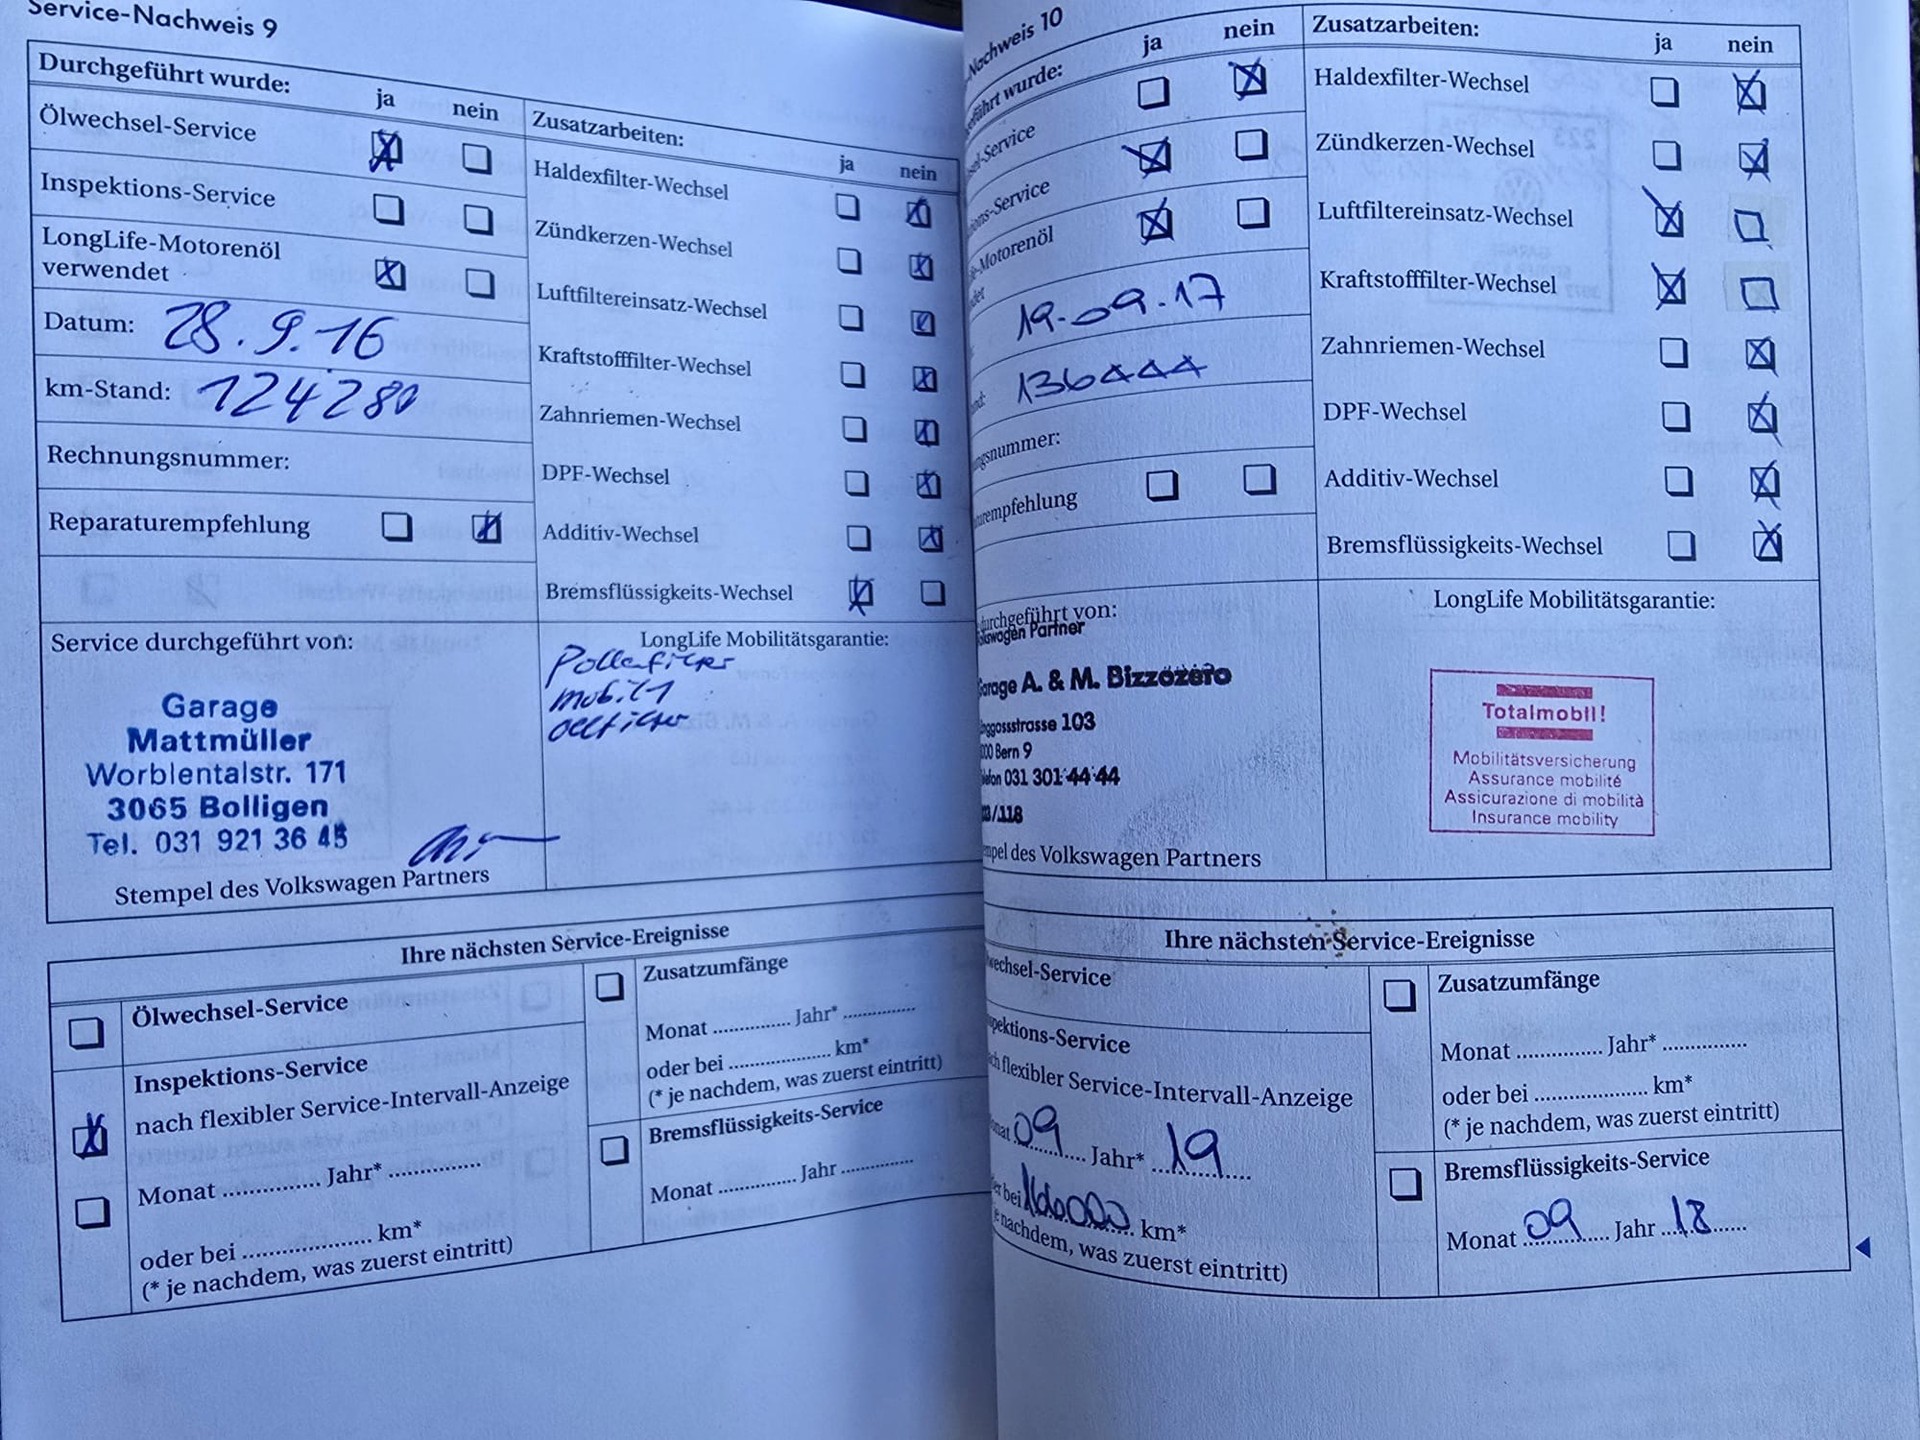 Service-Nachweis 9
Durchgeführt wurde:
ja nein
Ölwechsel-Service
Inspektions-Service
LongLife-Motorenöl
verwendet
Datum: 28.9.16
km-Stand: 124280
Rechnungsnummer:
Reparaturempfehlung
Zusatzarbeiten:
ja nein
Haldexfilter-Wechsel
Zündkerzen-Wechsel
Luftfiltereinsatz-Wechsel
Kraftstofffilter-Wechsel
Zahnriemen-Wechsel
DPF-Wechsel
Additiv-Wechsel
Bremsflüssigkeits-Wechsel
Service durchgeführt von:
Garage
Mattmüller
Worblentalstr. 171
3065 Bolligen
Tel. 031 921 36 45
Stempel des Volkswagen Partners
LongLife Mobilitätsgarantie:
Pollenfilter
mobil 1
Oelfilter
Ihre nächsten Service-Ereignisse
Ölwechsel-Service
Inspektions-Service
nach flexibler Service-Intervall-Anzeige
Monat .............. Jahr* ..............
oder bei .................... km*
(* je nachdem, was zuerst eintritt)
Zusatzumfänge
Monat .............. Jahr* ..............
oder bei .................... km*
(* je nachdem, was zuerst eintritt)
Bremsflüssigkeits-Service
Monat .............. Jahr ..............
-Nachweis 10
führt wurde:
ja nein
sel-Service
ions-Service
-Motorenöl
19-09-17
136444
gsnummer:
urempfehlung
Zusatzarbeiten:
ja nein
Haldexfilter-Wechsel
Zündkerzen-Wechsel
Luftfiltereinsatz-Wechsel
Kraftstofffilter-Wechsel
Zahnriemen-Wechsel
DPF-Wechsel
Additiv-Wechsel
Bremsflüssigkeits-Wechsel
durchgeführt von:
Volkswagen Partner
Garage A. & M. Bizzozero
ggossstrasse 103
000 Bern 9
Telefon 031 301 44 44
/118
mpel des Volkswagen Partners
LongLife Mobilitätsgarantie:
Totalmobil!
Mobilitätsversicherung
Assurance mobilité
Assicurazione di mobilità
Insurance mobility
Ihre nächsten Service-Ereignisse
wechsel-Service
pektions-Service
ch flexibler Service-Intervall-Anzeige
nat 09 Jahr* 19
er bei 166000 km*
je nachdem, was zuerst eintritt)
Zusatzumfänge
Monat .............. Jahr* ..............
oder bei .................... km*
(* je nachdem, was zuerst eintritt)
Bremsflüssigkeits-Service
Monat 09 Jahr 18